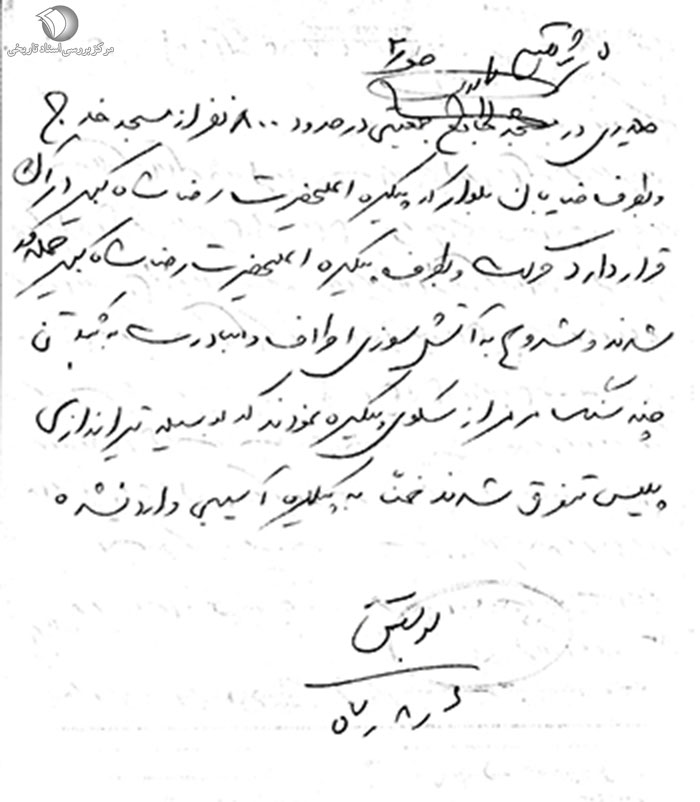 مرکز بررسی اسناد تاریخی
حیدری در مسجد جامع جمعیتی در حدود ۸۰۰ نفر از مسجد خارج
و بطرف خیابان بلوار که پیکره اعلیحضرت رضا شاه کبیر در آن
قرار دارد حرکت و بطرف پیکره اعلیحضرت رضا شاه کبیر حمله ور
شدند و شروع به آتش سوزی اطراف و مبادرت به کندن
چند سنگ مرمر از سکوی پیکره نمودند که بوسیله تیراندازی
پلیس متفرق شدند ضمناً به پیکره آسیبی وارد نشده